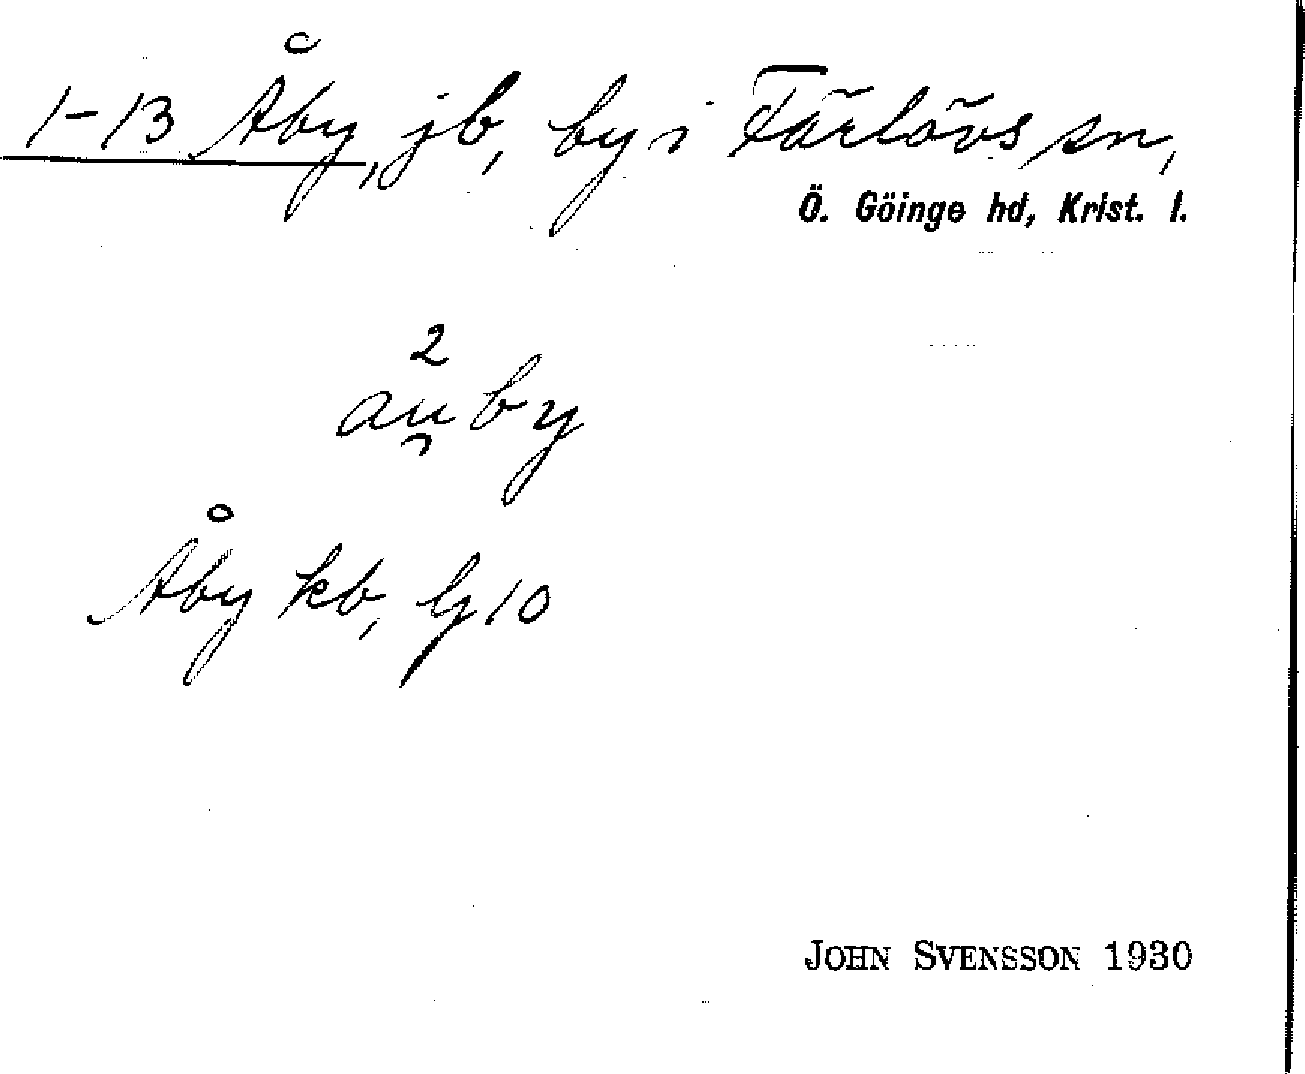 1-13 Åby, jb, by i Färlövs sn,
Ö. Göinge hd, Krist. l.
2
au̯by
Åby kb, G 10
JOHN SVENSSON 1930